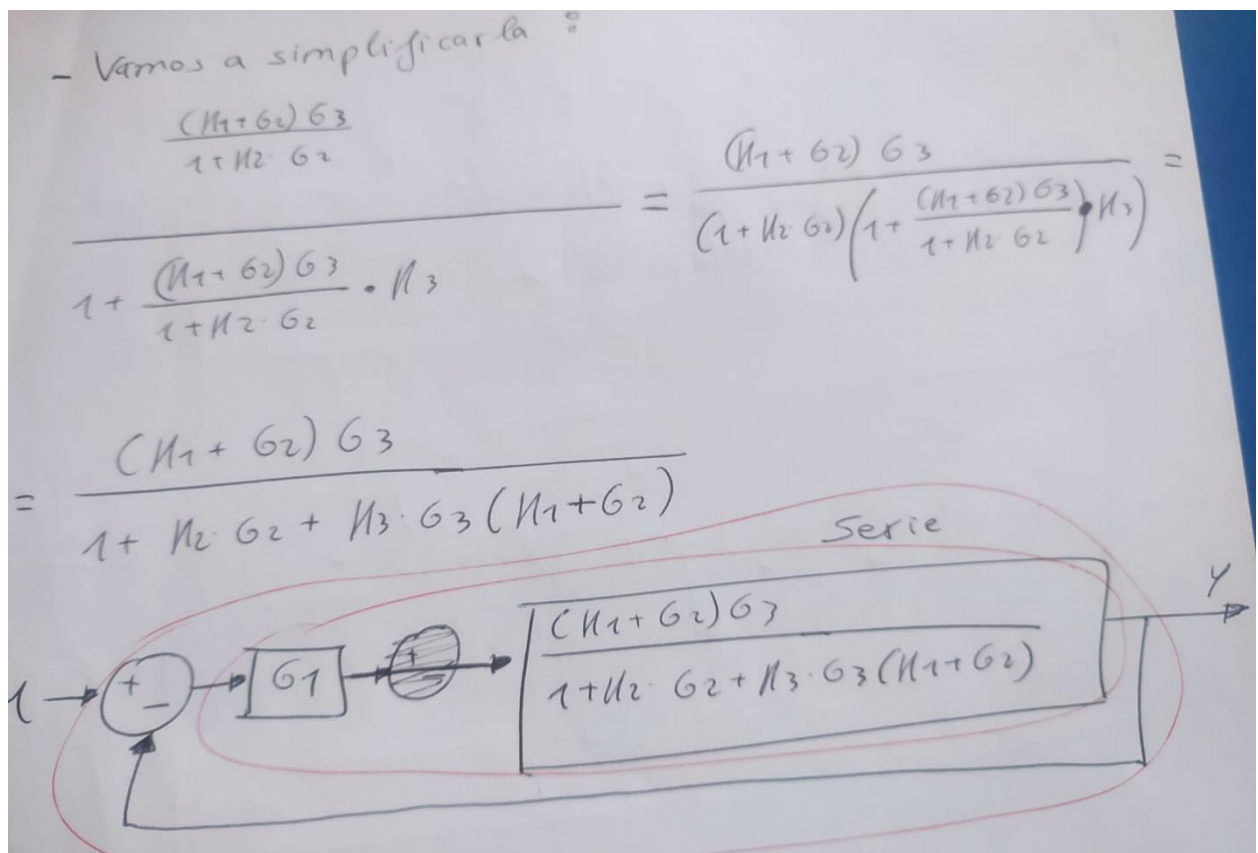 - Vamos a simplificarla :
(H1 + G2) G3
1 + H2 · G2
1 + (H1 + G2) G3 / 1 + H2 · G2 · H3
= (H1 + G2) G3 / (1 + H2 · G2) (1 + (H1 + G2) G3 / 1 + H2 · G2 · H3) =
= (H1 + G2) G3 / 1 + H2 · G2 + H3 · G3 (H1 + G2)
Serie
+ -
G1
+
(H1 + G2) G3
1 + H2 · G2 + H3 · G3 (H1 + G2)
Y